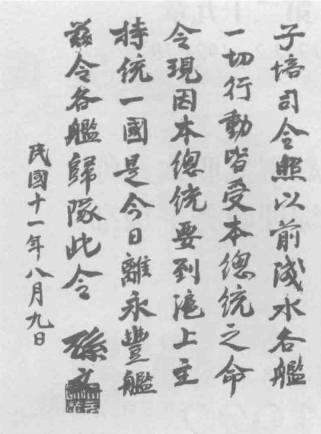 子培司令照以前淺水各艦
一切行動皆受本總統之命
令現因本總統要到滬上主
持統一國是今日離永豐艦
茲令各艦歸隊此令 孫文
民國十一年八月九日